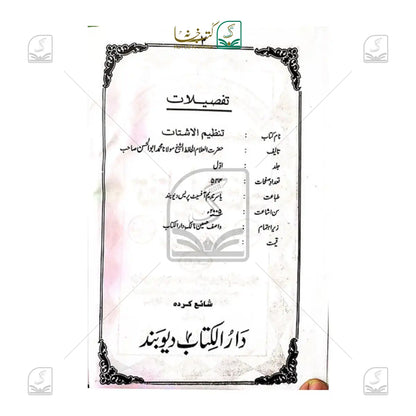 کتب خانہ
تفصیلات
نام کتاب : تنظیم الاشتات
تالیف : حضرت العلام الحافظ الشیخ مولانا محمد ابوالحسن صاحب
جلد : اوّل
تعداد صفحات : ۵۴۴
طباعت : یاسر ندیم آفسیٹ پریس دیوبند
سن اشاعت : ۲۰۰۵ء
زیر اہتمام : واصف حسین مالک دارالکتاب
قیمت :
شائع کردہ
دارُ الکتاب دیوبند